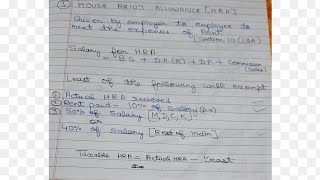 ① HOUSE RENT ALLOWANCE [HRA]
Given by employer to employee to
meet the expenses of Rent
[Section 10 (13A)
Salary for HRA
= B.S + D.A (R) + D.P + Commission
(Sales)
Least of the following will exempt
① Actual HRA received
② Rent paid - 10% of Salary (P.a)
③ 50% of Salary [M, D, C, K]
or
40% of Salary [Rest of India]
Taxable HRA = Actual HRA - Least